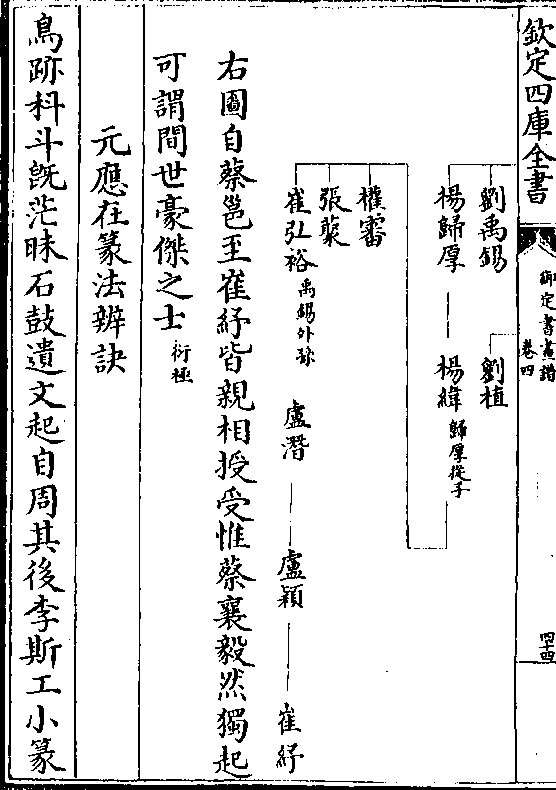 欽定四庫全書
御定書畫譜
卷四
四十四
劉禹錫
劉植
楊歸厚 楊緯歸厚從子
權審
張蒙
崔弘裕禹錫外孫 盧潛 盧穎 崔紓
右圖自蔡邕至崔紓皆親相授受惟蔡襄毅然獨起
可謂間世豪傑之士衍極
元應在篆法辨訣
鳥跡科斗旣茫昧石鼓遺文起自周其後李斯工小篆